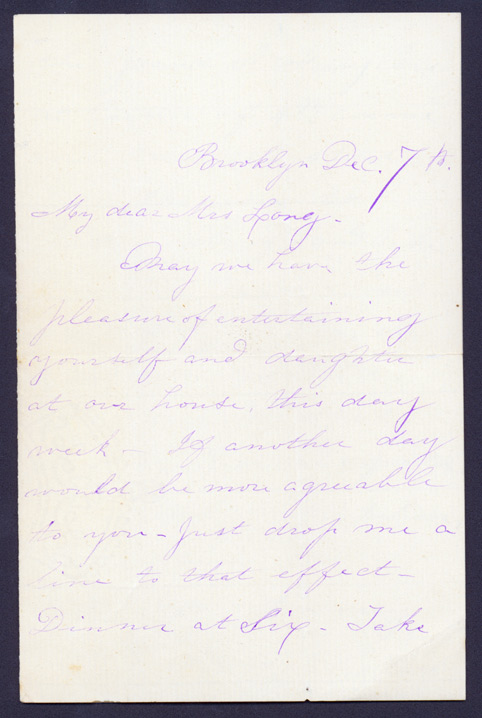 Brooklyn Dec. 7th.
My dear Mrs Long -
May we have the
pleasure of entertaining
yourself and daughter
at our house, this day
week - If another day
would be more agreeable
to you - just drop me a
line to that effect -
Dinner at Six - Take